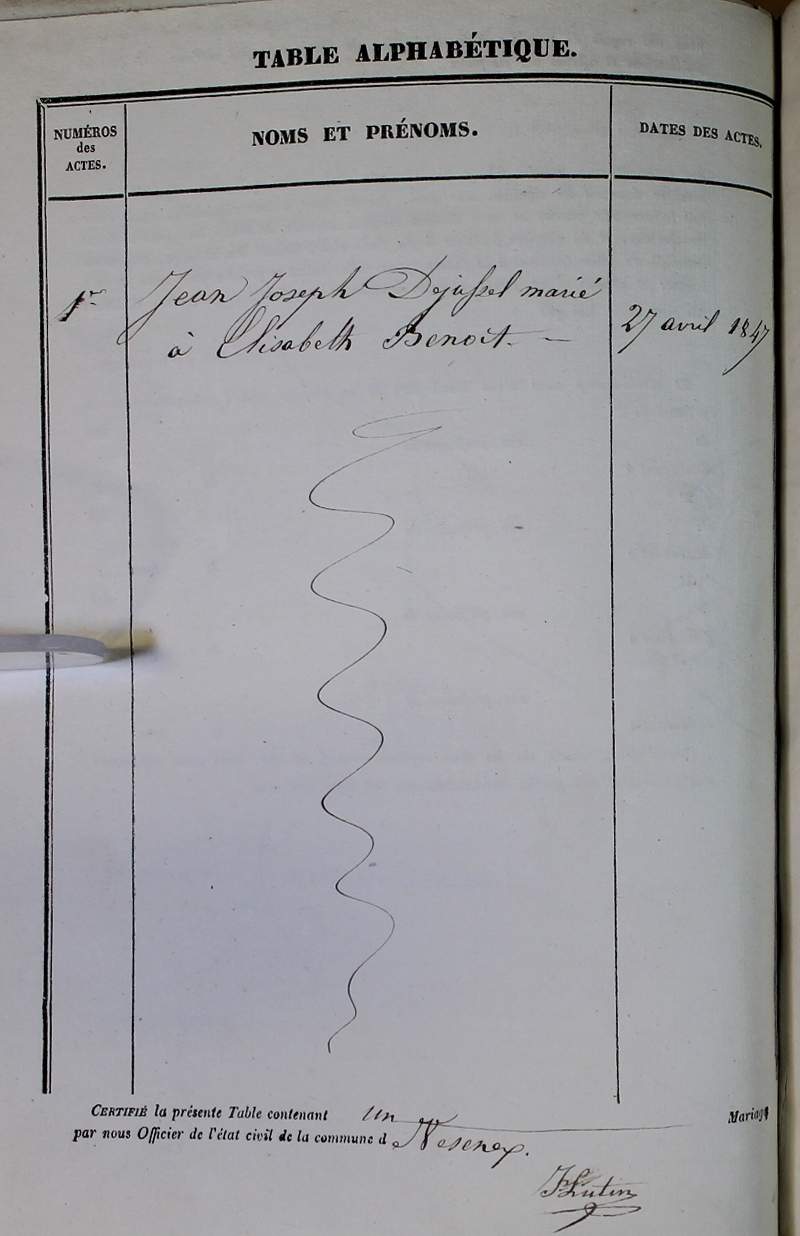 TABLE ALPHABÉTIQUE.
NUMÉROS
des
ACTES.
NOMS ET PRÉNOMS.
DATES DES ACTES.
1er
Jean Joseph Dejussel marié
à Elisabeth Benoit.
27 avril 1847
CERTIFIÉ la présente Table contenant un Mariage
par nous Officier de l'état civil de la commune d